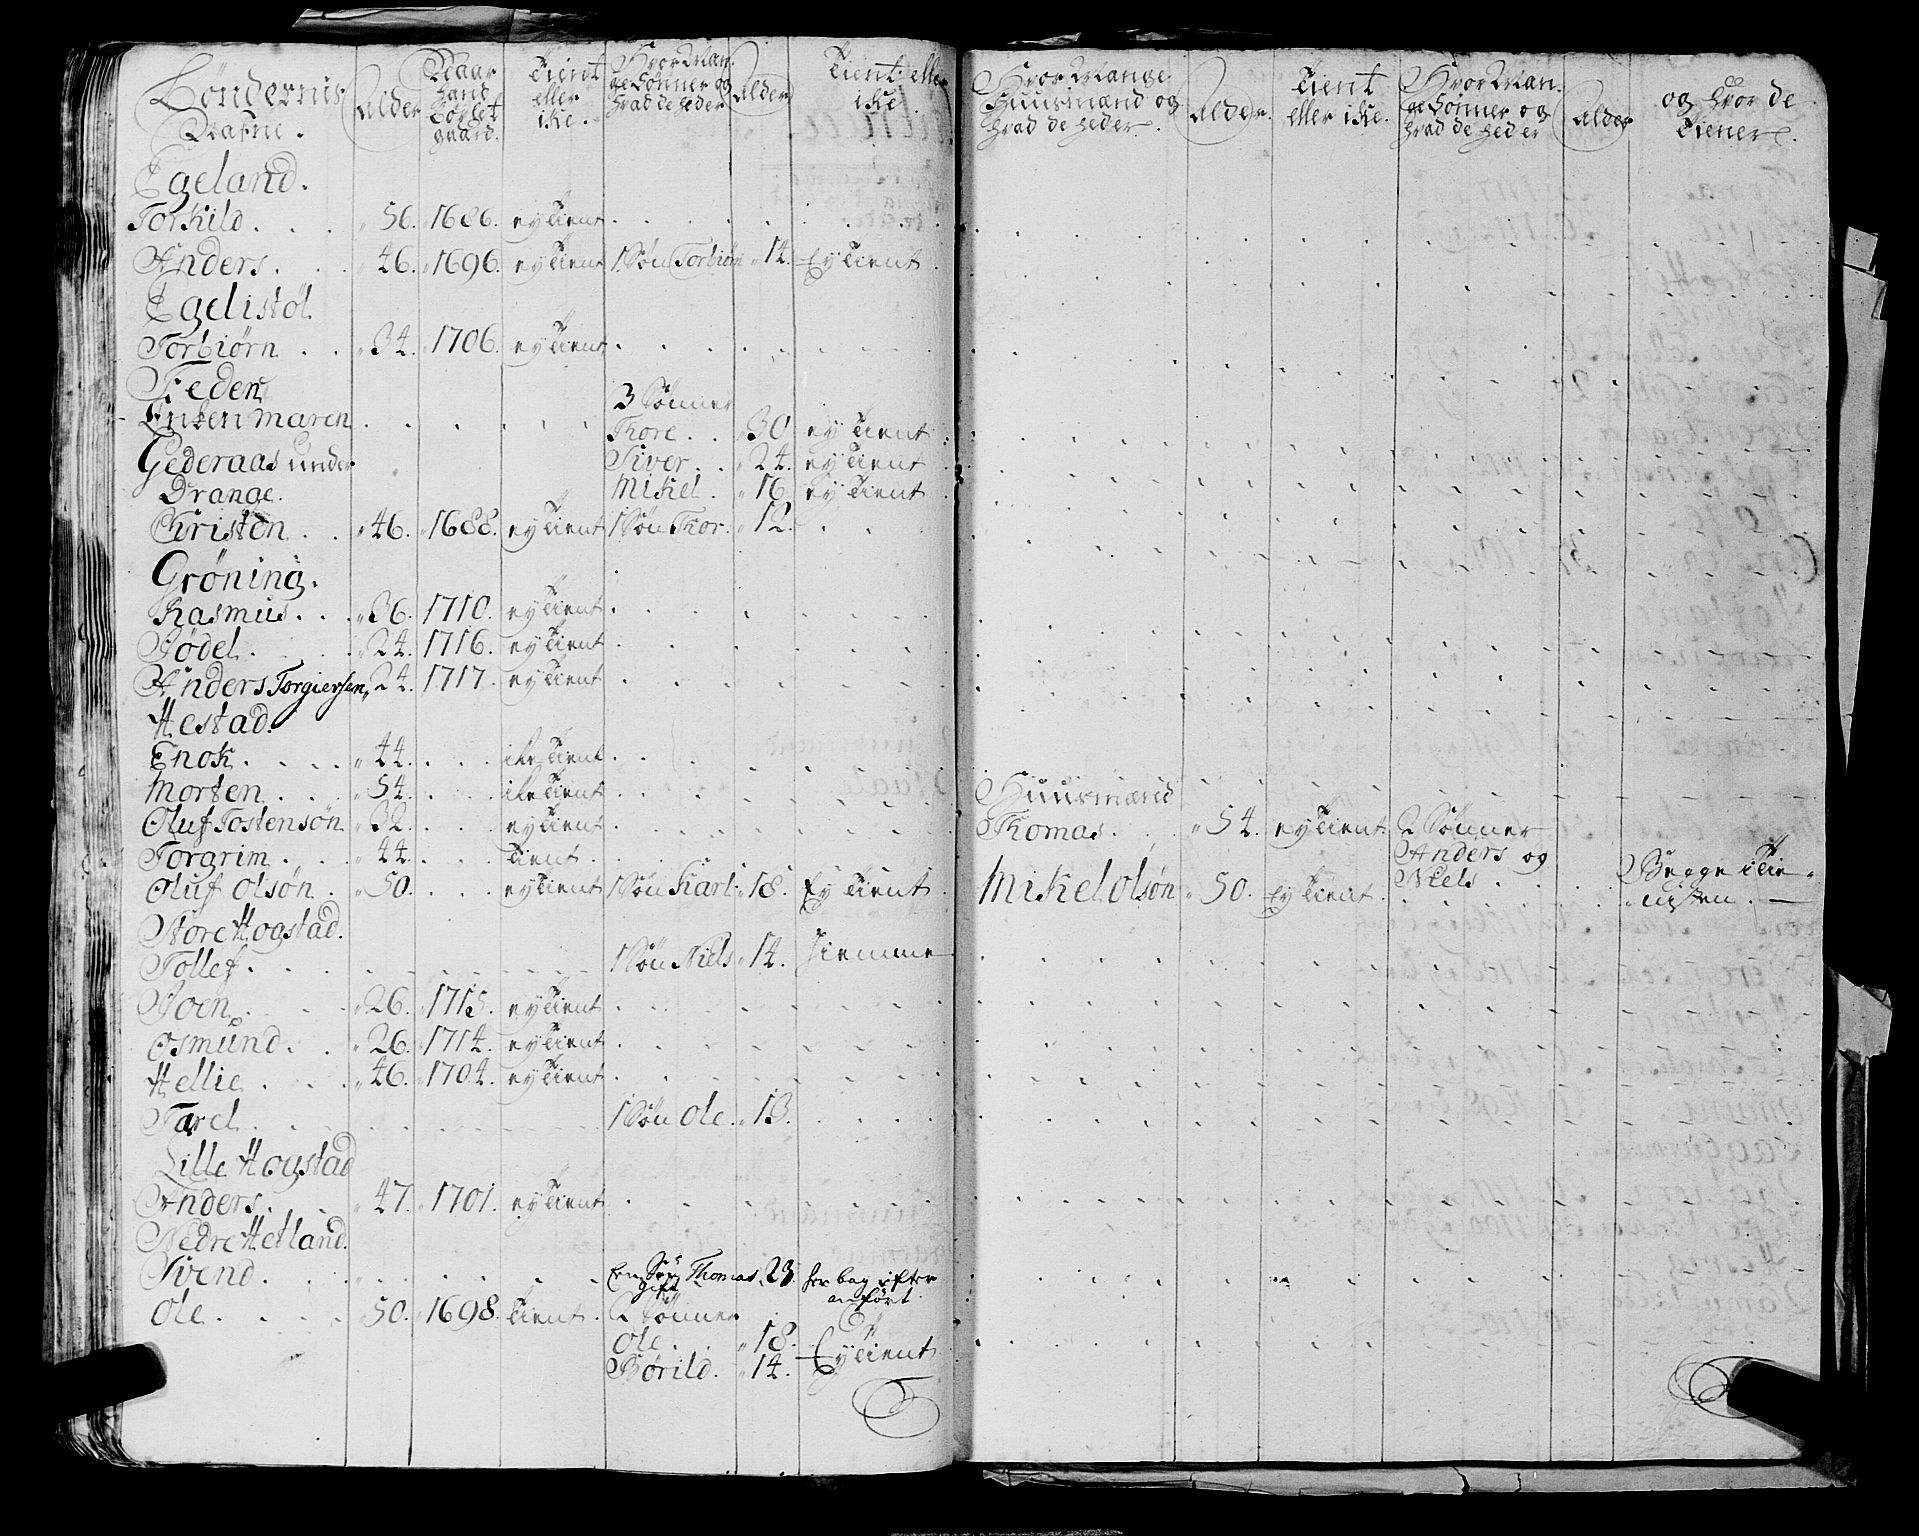 Bøndernis Nafne. Alder Naar hand Böxlet gaard. Tient eller ike. Hvor Mange Sønner og hvad de heder Alder Tient eller ike.
Egeland.
Torkild. . . 56. 1686. ey Tient
Anders. . . 46. 1696. ey Tient 1 Søn Torbiørn 14. Ey Tient
Egelistøl
Torbiørn . . 34. 1706. ey Tient
Feden
Enken Maren 3 Sønner
Thore. . 30 ey Tient
Gederaas under Siver. . 24. ey Tient
Drange. Mikel. 16. ey Tient
Christen. . 46. 1688. ey Tient 1 Søn Thor. 12.
Grøning.
Rasmus. . . 36. 1710. ey Tient
Bødel. 24. 1716. ey Tient
Anders Torgiersen, 24. 1717. ey Tient
Hestad.
Enok. . . . 44. ike Tient
Morten. . . 54. ike Tient
Oluf Tostensøn 32. ey Tient
Torgrim. . . 44. Tient.
Oluf Olsøn. 50. ey Tient 1 Søn Karl. 18. Ey Tient
Store Hogstad.
Tollef. . . 1 Søn Niels. 14. hiemme
Joen. 26. 1715. ey Tient
Osmund. . 26. 1714. ey Tient
Hellie. . . 46. 1704. ey Tient
Tarel. 1 Søn Ole. 13.
Lille Hogstad
Anders. . 47. 1701. ey Tient
Nedre Hetland.
Svend. . En Søn Thomas, 23. her bag efter
gift anført.
Ole. . . . 50. 1698. Tient. 2 Sønner
Ole. 18.
Børild. 14. Ey Tient
Hvor Mange Huusmænd og hvad de heder. Alder. Tient eller ike. Hvor Mange Sønner og hvad de heder Alder og hvor de Tiener.
Huusmænd
Thomas. 54. ey Tient. 2 Sønner
Anders og
Niels. Begge i Tie-
nisten.
Mikel Olsøn 50. Ey Tient.